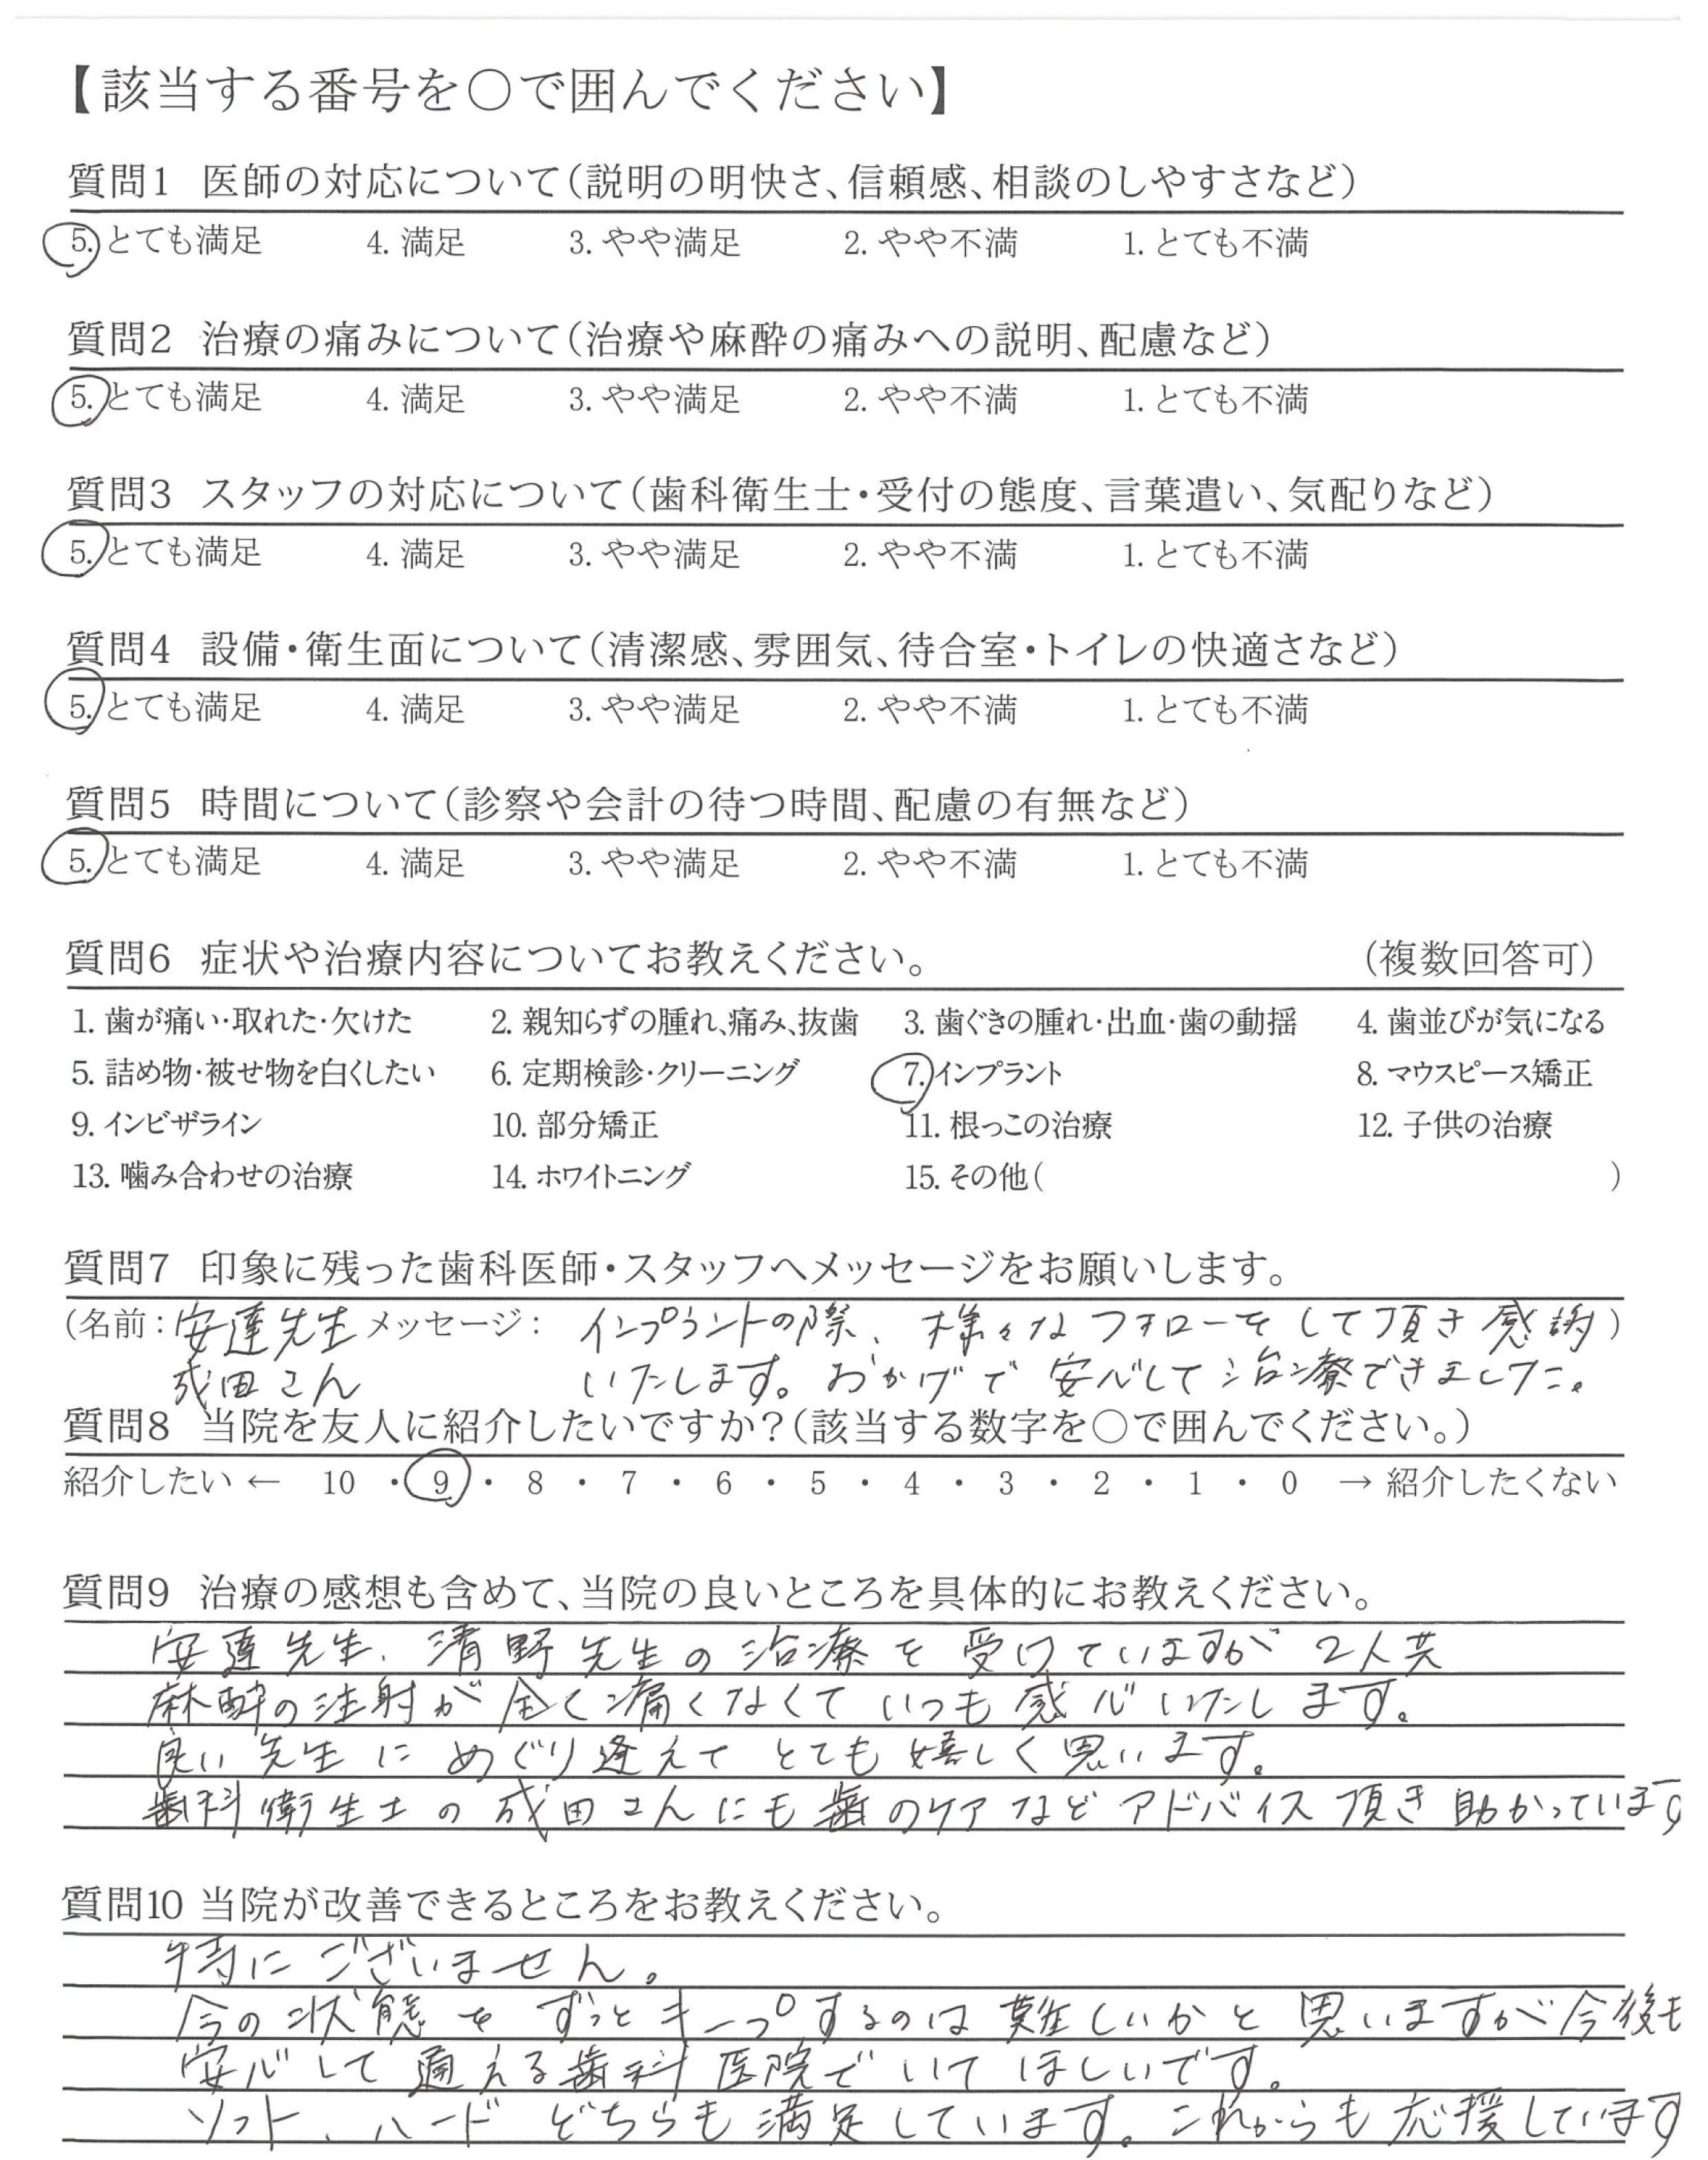 【該当する番号を〇で囲んでください】
質問1 医師の対応について(説明の明快さ、信頼感、相談のしやすさなど)
5. とても満足 4. 満足 3. やや満足 2. やや不満 1. とても不満
質問2 治療の痛みについて(治療や麻酔の痛みへの説明、配慮など)
5. とても満足 4. 満足 3. やや満足 2. やや不満 1. とても不満
質問3 スタッフの対応について(歯科衛生士・受付の態度、言葉遣い、気配りなど)
5. とても満足 4. 満足 3. やや満足 2. やや不満 1. とても不満
質問4 設備・衛生面について(清潔感、雰囲気、待合室・トイレの快適さなど)
5. とても満足 4. 満足 3. やや満足 2. やや不満 1. とても不満
質問5 時間について(診察や会計の待つ時間、配慮の有無など)
5. とても満足 4. 満足 3. やや満足 2. やや不満 1. とても不満
質問6 症状や治療内容についてお教えください。 (複数回答可)
1. 歯が痛い・取れた・欠けた 2. 親知らずの腫れ、痛み、抜歯 3. 歯ぐきの腫れ・出血・歯の動揺 4. 歯並びが気になる
5. 詰め物・被せ物を白くしたい 6. 定期検診・クリーニング 7. インプラント 8. マウスピース矯正
9. インビザライン 10. 部分矯正 11. 根っこの治療 12. 子供の治療
13. 噛み合わせの治療 14. ホワイトニング 15. その他( )
質問7 印象に残った歯科医師・スタッフへメッセージをお願いします。
(名前:安達先生 メッセージ: インプラントの際、様々なフォローをして頂き感謝)
成田さん いたします。おかげで安心して治療できました。
質問8 当院を友人に紹介したいですか?(該当する数字を〇で囲んでください。)
紹介したい ← 10 ・ 9 ・ 8 ・ 7 ・ 6 ・ 5 ・ 4 ・ 3 ・ 2 ・ 1 ・ 0 → 紹介したくない
質問9 治療の感想も含めて、当院の良いところを具体的にお教えください。
安達先生、清野先生の治療を受けていますが2人共
麻酔の注射が全く痛くなくていつも感心いたします。
良い先生にめぐり逢えてとても嬉しく思います。
歯科衛生士の成田さんにも歯のケアなどアドバイス頂き助かっています
質問10 当院が改善できるところをお教えください。
特にございません。
今の状態をずっとキープするのは難しいかと思いますが今後も
安心して通える歯科医院でいてほしいです。
ソフト、ハードどちらも満足しています。これからも応援しています